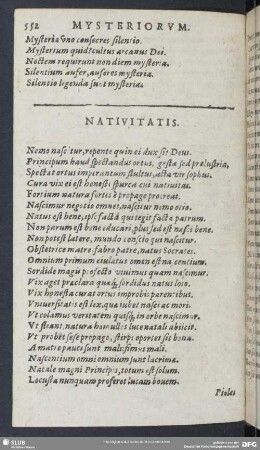 552 MYSTERIORVM.
Mysteria vno consecres silentio.
Mysterium quid? cultus arcanus Dei.
Noctem requirunt non diem mysteria.
Silentium aufer, auferes mysteria.
Silentio legenda sunt mysteria.
NATIVITATIS.
Nemo nascitur, repente quin ei dux sit Deus.
Principum haud spectandus ortus, gesta sed prælustria,
Spectat ortus imperantum stultus, acta vir sophus.
Cura vix ei est honesti spurca cui natiuitas.
Fortium natura fortes è propage procreat.
Nascimur negotio omnes, nascitur nemo ocio.
Natus est bene, ipse facta qui tegit facta patrum.
Non parum est bene educari, plus sed est nasci bene.
Non potest latere, mundo conscio qui nascitur.
Obstetrice matre fabro patre, natus Socrates.
Omnium primum eiulatus omen est nascentium.
Sordide magis profecto viuimus quam nascimur.
Vix aget præclara quæque, sordidus natus loco.
Vix honesta curat ortus improbis parentibus.
Vniuersitatis est lex, quæ iubet nasci ac mori.
Vt colamus veritatem quisque in orbe nascimur.
Vt fleant, natura homines luce natali abiicit.
Vt probet sese propago, stirps oportet sit bona.
A matre pauci sunt mali, fiunt mali.
Nascentium omni omnium sunt lacrimæ.
Natale magni Principis, totum est solum.
Locusta nunquam proferet lucam bouem.
Pieles
SLUB
DFG